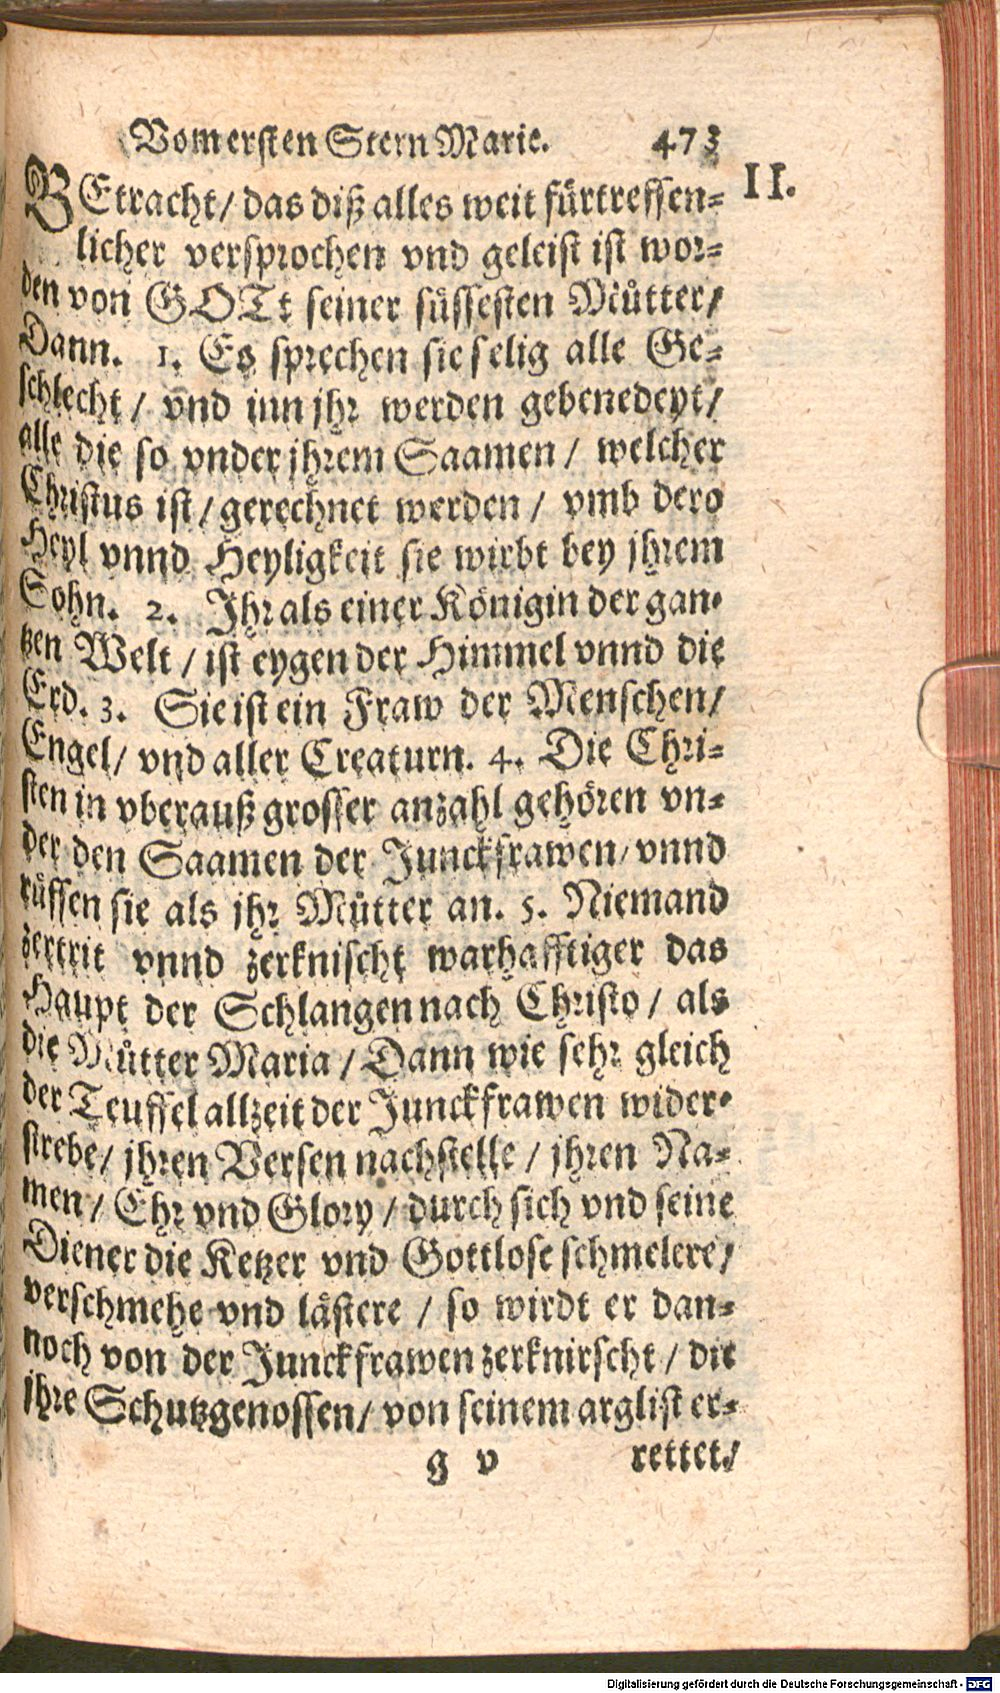 Vom ersten Stern Marie. 473
II.
BEtracht / das diß alles weit fürtreffen-
licher versprochen vnd geleist ist wor-
den von GOTt seiner süssesten Mütter /
Dann. 1. Es sprechen sie selig alle Ge-
schlecht / vnd inn jhr werden gebenedeyt /
alle die so vnder jhrem Saamen / welcher
Christus ist / gerechnet werden / vmb dero
Heyl vnnd Heyligkeit sie wirbt bey jhrem
Sohn. 2. Jhr als einer Königin der gan-
tzen Welt / ist eygen der Himmel vnnd die
Erd. 3. Sie ist ein Fraw der Menschen /
Engel / vnd aller Creaturn. 4. Die Chri-
sten in vberauß grosser anzahl gehören vn-
der den Saamen der Junckfrawen / vnnd
rüffen sie als jhr Mütter an. 5. Niemand
zertrit vnnd zerknischt warhafftiger das
Haupt der Schlangen nach Christo / als
die Mütter Maria / Dann wie sehr gleich
der Teuffel allzeit der Junckfrawen wider-
strebe / jhren Versen nachstelle / jhren Na-
men / Ehr vnd Glory / durch sich vnd seine
Diener die Ketzer vnd Gottlose schmelere /
verschmehe vnd lästere / so wirdt er dan-
noch von der Junckfrawen zerknirscht / die
jhre Schutzgenossen / von seinem arglist er-
g v rettet /
Digitalisierung gefördert durch die Deutsche Forschungsgemeinschaft - DFG